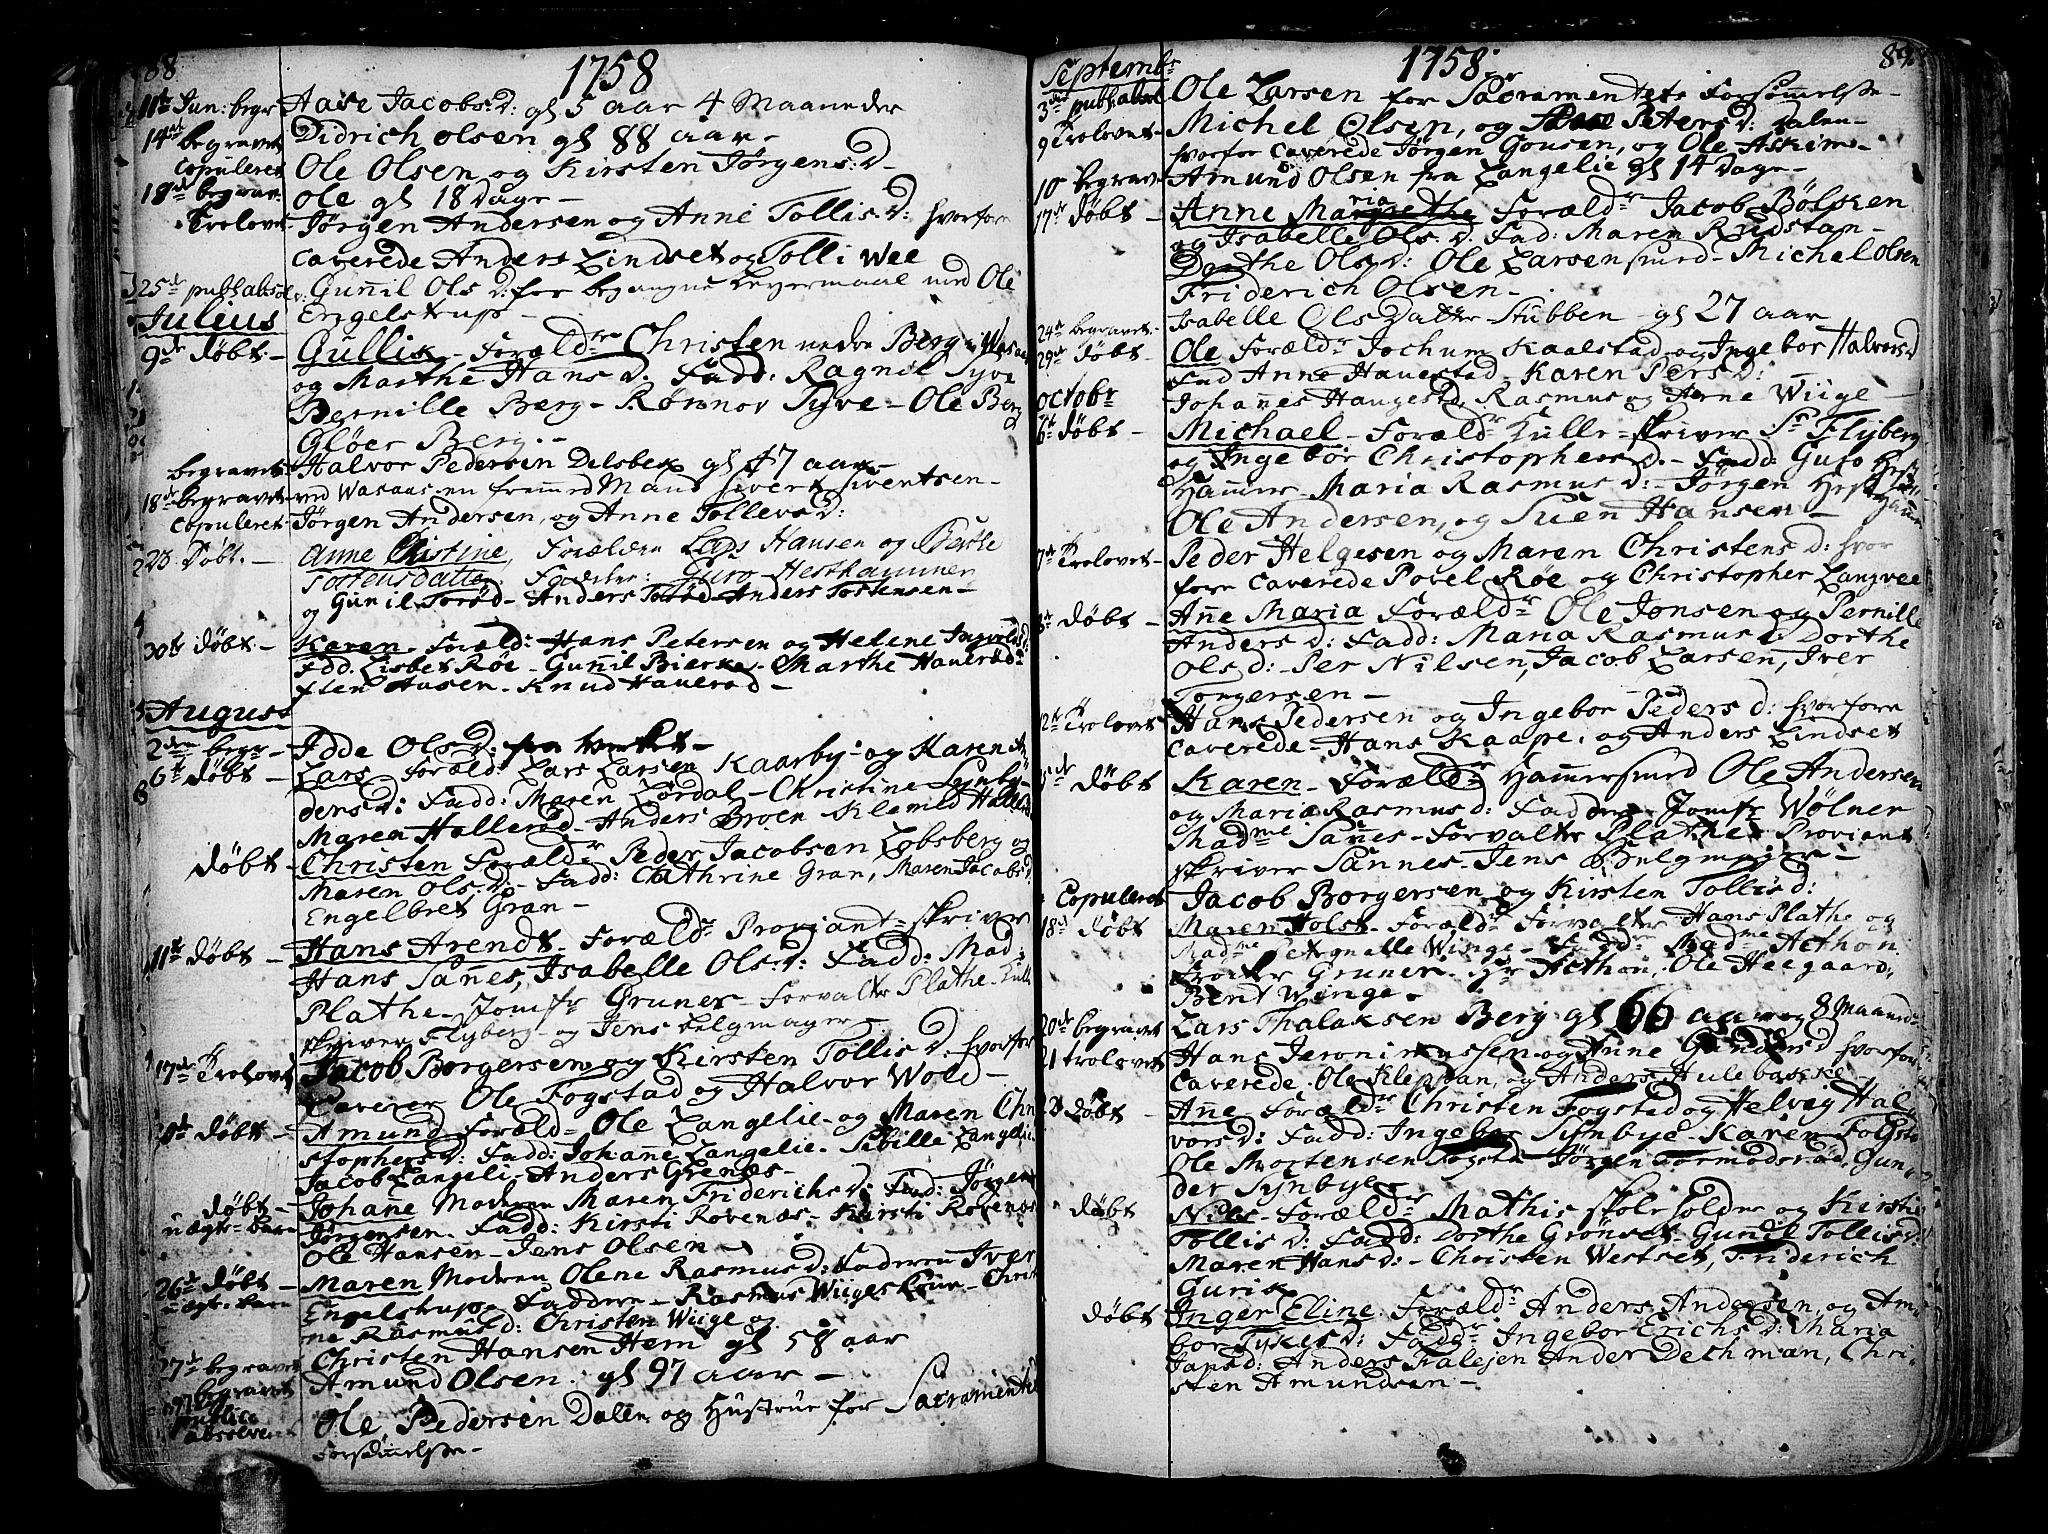 88
1758
11te Jun: begr Aase Jacobs D: gl 5 aar 4 Maaneder
14de begravet Didrich Olsen gl 88 aar -
Copuleret Ole Olsen og Kirsten Jørgens: D -
18de begrav: Ole gl 18 Dage -
Trolovet - Jørgen Andersen og Anne Tollis D: hvorfore
Caverede Anders Lindset og Tolli Wee
25de publ: absol: Gunnil Ols D: for begangne Leyermaal med Ole
Julius Engelstrup -
9de døbt - Gullik - Forældre Christen nedre Berg i
og Marthe Hans D. Fadd: Ragnil Tyve
Bernille Berg - Rønnov Tyve - Ole Berg
Gløer Berg. -
begravet - Halvor Pedersen Delsbek gl 47 aar -
18de begravet - ved Wasaas en fremmed Mand Sivert Siventsen -
Copuleret - Jørgen Andersen, og Anne Tollevs D:
23 Døbt. - Anne Christine, Forælder Lars Hansen og
Tostensdatter, Faddere: Guro Hesthammer
og Gunil Torød - Anders Torød - Anders Tostensen -
30te døbt - Karen - Foræld: Hans Petersen og Helene Ingvolds D:
Fdd: Lisbet Røe - Gunil Bierke - Marthe Hauerød
Hauerød -
August
2den begr - Idde Ols D: fra Verket -
6te døbt - Lars - Foræld: Lars Larsen Kaarby - og Karen An
ders D: Fadd: Maren Lørdal - Christine Synbye
Maren Hallerød - Anders Broen Klemed Halle
døbt - Christen Forældr Peder Jacobsen Løbsberg og
Maren Ols: D - Fadd: Cathrine Gran, Maren Jacobs D:
Engelbret Gran -
11te døbt - Hans Arendt - Forældr Proviant-skriver
Hans Sanes, Isabelle Ols: D: Fadd: Mad:
Plathe - Jomfr Gruner - Forvalter Plathe - Kulle
skriver Flyberg - og Jens Helgmager -
17de Trolovet Jacob Borgersen og Kirsten Tollis D. hvorfor
Caverer Ole Fogstad og Halvor Wold -
20de døbt - Amund Foræld: Ole Langelie - og Maren Chri
stophers D: Fadd: Johanne Langelie - Sibille Langelie
Jacob Langeli - Anders Grenæs -
døbt - Johane Modren Maren Friderichs D: Fad: Jørgen
uægte-barn Jørgensen. Fadd: Kirsti Rovenæs - Kirsti Rovenæs
Ole Hansen - Jens Olsen -
26de døbt - Maren Modren Olene Rasmus D: Faderen Iver
uægte-barn Engelstrup - Faddere - Rasmus Wiiges Kone - Christi
ne Rasmus D: Christen Wiige og
27de begravet Christen Hansen Hem gl 58 aar
begravet Amund Olsen. gl 97 aar -
publice Ole Pedersen Dalen og Hustrue for Sacramentets
absolveret Forsømmelse -
89
Septembr 1758
3die publ: absol Ole Larsen for Sacramentets Forsømmelse -
9 Trolovet - Michel Olsen, og Peters D: Dalen -
hvorfor Caverede Jørgen Gousen, og Ole Askim -
10 begravet - Amund Olsen fra Langelie gl 14 Dage -
17de døbt - Anne Maria Forældr Jacob Bølsken
og Isabelle Ols: D. Fad: Maren Rødstan -
Dorthe Ols D: Ole Larsen smed - Michel Olsen
Friderich Olsen -
24de begravet - Isabelle Ols Datter Stubben - gl 27 aar
29de døbt - Ole Forældr Jochum Kaalstad og Ingebor Halvors D
Fad Anne Hauestad - Karen Pers D:
Octobr Johannes Haugestd Rasmus og Arne Wiige -
6te døbt - Michael - Forældr Kulle-skriver Sr Flyberg
og Ingebor Christophers D. - Fadd: Guro Hest
Hammer - Maria Rasmus D: - Jørgen Hesthamr
Ole Andersen, og Suen Hansen -
7de Trolovet - Peder Helgesen og Maren Christens D: hvor
fore Caverede Povel Røe og Christopher Langvee
8de døbt - Anne Maria Forældr Ole Jonsen og Pernille
Anders D: Fadd: Maria Rasmus D Dorthe
Ols D: Per Nilsen, Jacob Larsen, Iver
Torgersen -
12te Trolovet Hans Pedersen og Ingebor Peders D: hvorfore
Caverede - Hans Kaape, og Anders Lindset
døbt Karen - Forældr Hamersmed Ole Andersen
og Maria Rasmus D: Faddere Jomfr Wølner
Madme Sanes - Forvalter Plather Proviant
skriver Sannes - Jens Helgmager -
Copuleret Jacob Borgersen og Kirsten Tollis D:
18de døbt Maren Holst - Forældr Forvalter Hans Plathe og
Madme Petronelle Winge - Faddr Madme Acthon
Gruner. Hr Acthon, Ole Heegaard:
Bent Winge.
20de begravet Lars Thalaksen Berg gl 66 aar og 8 Maaned
21 trolovet Hans Jeronimussen og Anne Gunders D hvorfore
Caverede Ole Kleppan, og Anders Hulebakke -
døbt - Anne - Forældr Christen Fogstad og Helvig Hal
vors D: Fadd: Ingebor Synbye - Karen Fogstd
Ole Mortensen Fogstd - Jørgen Tormodsrød, Gun-
der Synbye -
døbt Nils - Forældr Mathis Skoleholder og Kirsti
Tollis D: Fadd: Dorthe Grønset - Gunil Tollis D:
Maren Hans D: - Christen Westset, Friderich
Gurik -
døbt Inger Eline. Forældr Anders Andersen, og Am
bor Tykes D: Faddr Ingebor Erichs D: Maria
Jans D: Anders Falejen Ander Dechman, Chri-
sten Amundsen -